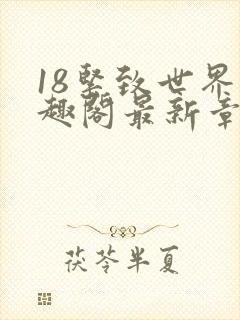 18竖致世界
趣阁最新章
茯苓半夏